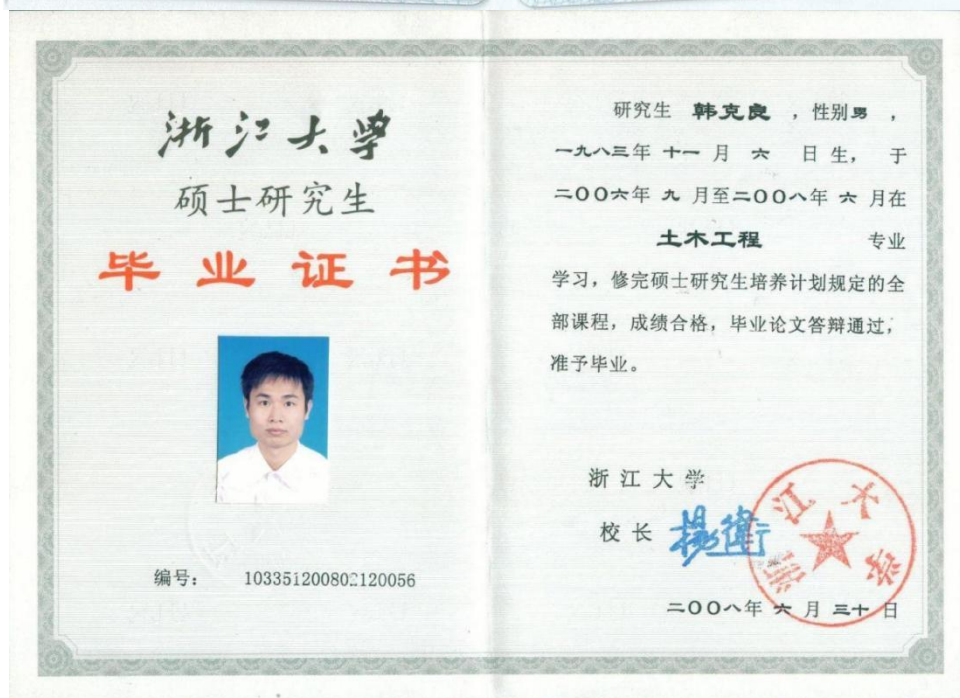 浙江大学
硕士研究生
毕业证书
编号: 103351200802120056
研究生 韩克良 ，性别男 ，
一九八三年 十一 月 六 日生， 于
二〇〇六年 九 月至二〇〇八年 六 月在
土木工程 专业
学习，修完硕士研究生培养计划规定的全
部课程，成绩合格，毕业论文答辩通过，
准予毕业。
浙江大学
校长 杨卫
浙江大学
二〇〇八年 六 月 三十 日